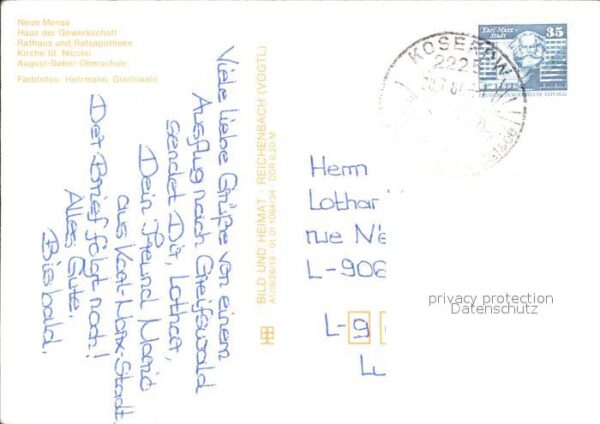 Neue Mensa
Haus der Gewerkschaft
Rathaus und Ratsapotheke
Kirche St. Nicolai
August-Bebel-Oberschule
Farbfotos: Herrmann, Greifswald
Viele liebe Grüße von einem
Ausflug nach Greifswald
sendet Dir, Lothar,
Dein Freund Mario
aus Karl-Marx-Stadt.
Der Brief folgt noch!
Alles Gute.
Bis bald.
BILD UND HEIMAT · REICHENBACH (VOGTL)
A1/III/26/13 01 01 1064/34 DDR 0,20 M
Karl-Marx-
Stadt
35
KOSEROW
222
Herrn
Lothar
rue Ne
L-906
L-9
privacy protection
Datenschutz